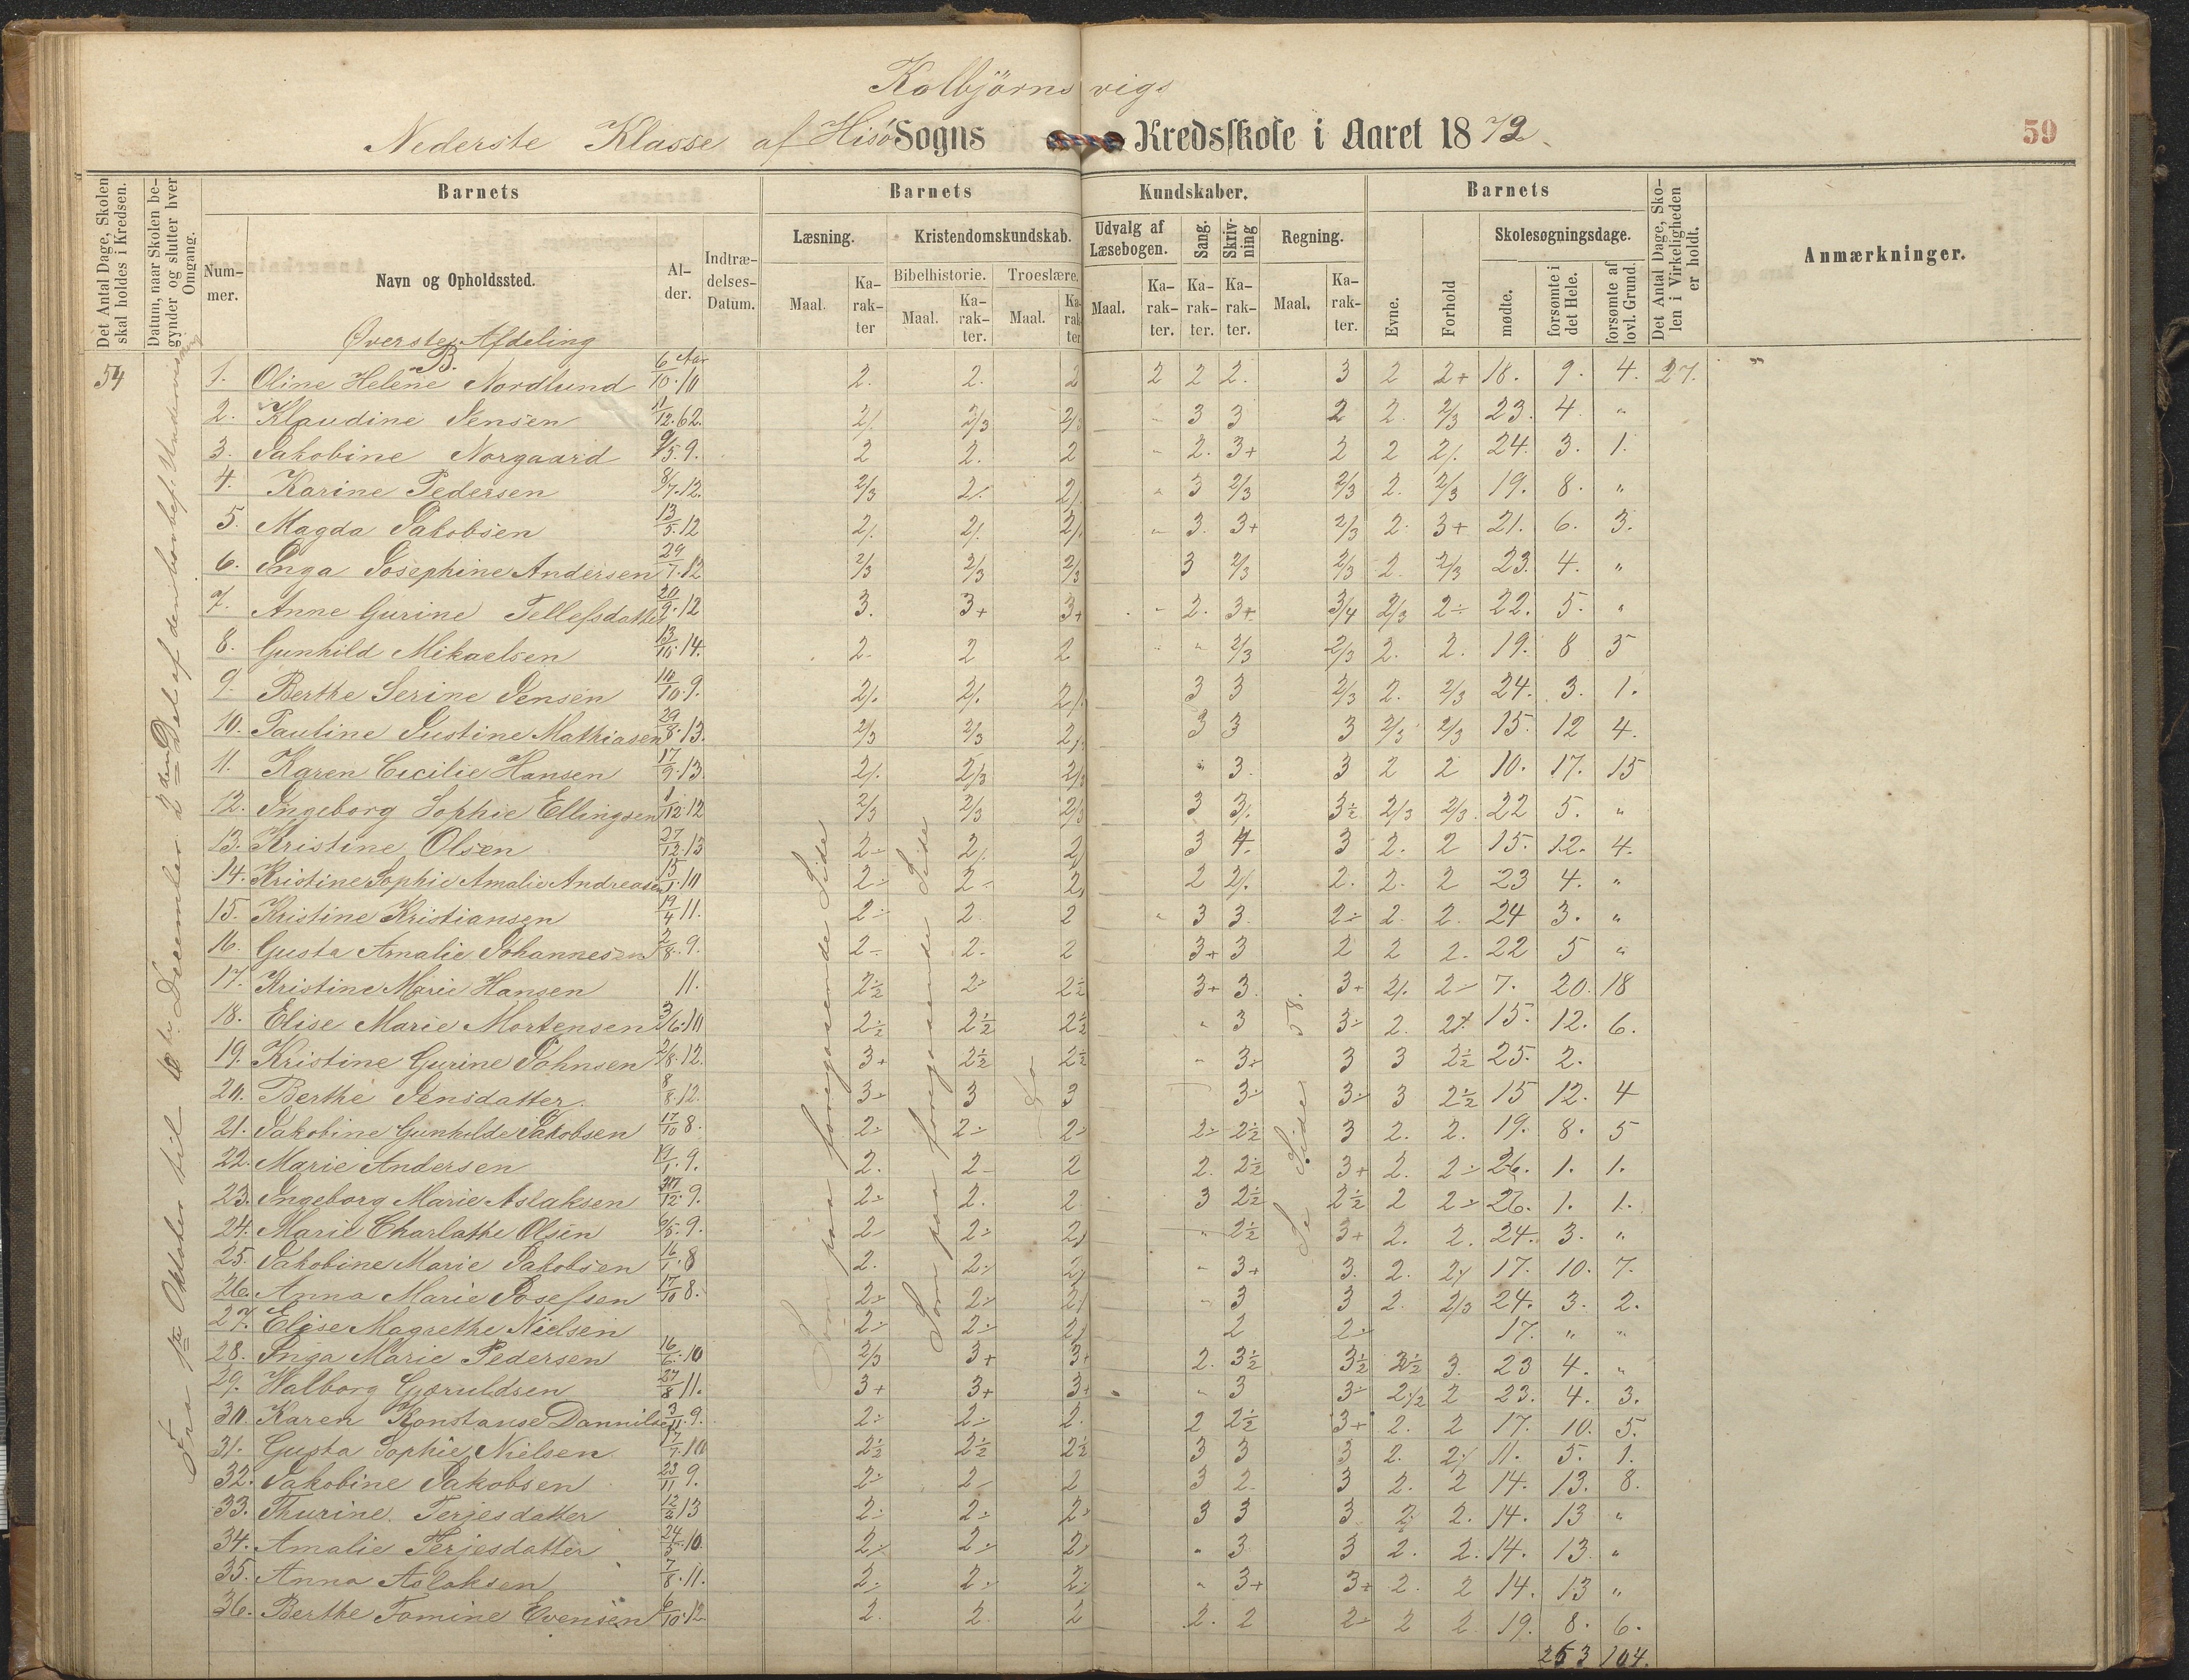 Kolbjörnsvigs
Nederste Klasse af Hisö Sogns Kredsskole i Aaret 1872.
59
Det Antal Dage, Skolen skal holdes i Kredsen.
Datum, naar Skolen begynder og slutter hver Omgang.
Barnets
Barnets
Kundskaber.
Barnets
Det Antal Dage, Skolen i Virkeligheden er holdt.
Anmærkninger.
Nummer.
Navn og Opholdssted.
Alder.
Indtrædelses-Datum.
Læsning.
Kristendomskundskab.
Udvalg af Læsebogen.
Sang.
Skrivning
Regning.
Evne.
Forhold
Skolesøgningsdage.
Bibelhistorie.
Troeslære.
mødte.
forsømte i det Hele.
forsømte af lovl. Grund.
Maal.
Karakter
Maal.
Karakter.
Maal.
Karakter
Maal.
Karakter.
Karakter.
Karakter.
Maal.
Karakter.
Øverste Afdeling
B.
54
Fra 1ste Oktober til December 2den Del af den
Som paa foregaaende Side
Som paa foregaaende Side
Do
Se Side 58.
1. Oline Helene Nordlund 6/10. 10 Aar 2. 2. 2 2 2 2. 3 2 2+ 18. 9. 4. 27.
2. Klaudine Jensen 11/12. 62. 2/. 2/3 2/3 " 3 3 2 2. 2/3 23. 4. "
3. Jakobine Norgaard 9/5. 9. 2 2. 2 " 2. 3+ 2 2 2/. 24. 3. 1.
4. Karine Pedersen 8/7. 12. 2/3 2/. 2/. " 3 2/3 2/3 2. 2/3 19. 8. "
5. Magda Jakobsen 13/5. 12 2/. 2/. 2/. " 3. 3+ 2/3 2. 3+ 21. 6. 3.
6. Inga Josephine Andersen 29/7. 12 2/3 2/3 2/3 3 2/3 2/3 2. 2/3 23. 4. "
7. Anne Gurine Tellefsdatter 20/9. 12 3. 3+ 3+ " 2. 3+ 3/4 2/3 2÷ 22. 5. "
8. Gunhild Mikaelsen 13/10. 14. 2. 2 2 " 2/3 2/3 2. 2. 19. 8 5
9. Berthe Serine Jensen 10/10. 9. 2/. 2/. 2/. 3 3 2/3 2. 2/3 24. 3. 1.
10. Pauline Justine Mathiasen 29/8. 13. 2/3 2/3 2/. 3 3 3 2/3 2/3 15. 12 4.
11. Karen Cicilie Hansen 17/9. 13. 2/. 2/3 2/3 " 3. 3 2 2 10. 17. 15
12. Ingeborg Sophie Ellingsen 1/12 12 2/3 2/3 2/3 3 3/. 3÷ 2/3 2/3. 22 5. "
13. Kristine Olsen 27/12. 13 2÷ 2/. 2/ 3 4. 3 2. 2 15. 12. 4.
14. Kristine Sophie Amalie Andreasen 15/1. 10 2÷ 2÷ 2/ 2 2/. 2. 2. 2 23 4. "
15. Kristine Kristiansen 19/4 11. 2÷ 2. 2 " 3 3. 2÷ 2. 2. 24 3. "
16. Gusta Amalie Johannesen 2/8. 9. 2÷ 2. 2 3+ 3 2 2 2. 22 5 "
17. Kristine Marie Hansen 11. 2½ 2÷ 2½ 3+ 3. 3+ 2/. 2÷ 7. 20. 18
18. Elise Marie Mortensen 3/6. 10 2½ 2½ 2½ " 3 3÷ 2. 2/. 15. 12. 6.
19. Kristine Gurine Johnsen 2/8. 12. 3+ 2½ 2½ " 3÷ 3 3 2½ 25. 2.
20. Berthe Jensdatter. 8/8. 12. 3÷ 3 3 3÷ 3÷ 3 2½ 15 12. 4
21. Jakobine Gunhilde Jakobsen 17/10 8. 2÷ 2÷ 2÷ 2÷ 2½ 3 2. 2. 19. 8. 5
22. Marie Andersen 19/1. 9. 2. 2÷ 2 2. 2½ 3+ 2. 2÷ 26. 1. 1.
23. Ingeborg Marie Aslaksen 12. 9. 2÷ 2. 2. 3 2½ 2½ 2 2÷ 26. 1. 1.
24. Marie Charlathe Olsen 6/5. 9. 2÷ 2÷ 2/ " 2½ 3+ 2. 2. 24. 3. "
25. Jakobine Marie Jakobsen 16/1. 8 2. 2/. 2/ " 3+ 3. 2. 2/ 17. 10. 7.
26. Anna Marie Josefsen 17/10 8. 2÷ 2/. 2/ " 3 3 2. 2/3 24. 3. 2.
27. Elise Magrethe Nielsen 2÷ 2÷ 2/ 2 2÷ 17. " "
28. Inga Marie Pedersen 16/6. 10 2/3 3+ 3+ 2. 3½ 3½ 2½ 3. 23 4. "
29. Walborg Gjeruldsen 27/8 11. 3+ 3+ 3+ " 3 3÷ 2½ 2 23. 4. 3.
30. Karen Konstanse Dannilsen 3/11. 9. 2÷ 2÷ 2. 2 2½ 3+ 2. 2 17. 10. 5.
31. Gusta Sophie Nielsen 17/7. 10 2½ 2½ 2½ 3 3 3 2. 2/. 11. 5. 1.
32. Jakobine Jakobsen 23/11 9. 2÷ 2÷ 2 3 2. 3 2. 2 14. 13. 8.
33. Thurine Terjesdatter 12/2 13 2÷ 2÷ 2÷ 3 3 3 2. 2. 14. 13 "
34. Amalie Terjesdatter 24/5. 10. 2/. 2/. 2/ " 3 3 2. 2. 14. 13. "
35. Anna Aslaksen 7/8. 11. 2÷ 2÷ 2÷ " 3+ 3+ 2. 2 14. 13 "
36. Berthe Tomine Evensen 6/10. 12 2. 2 2 2. 2 2÷ 2 2. 19. 8. 6.
253 104.